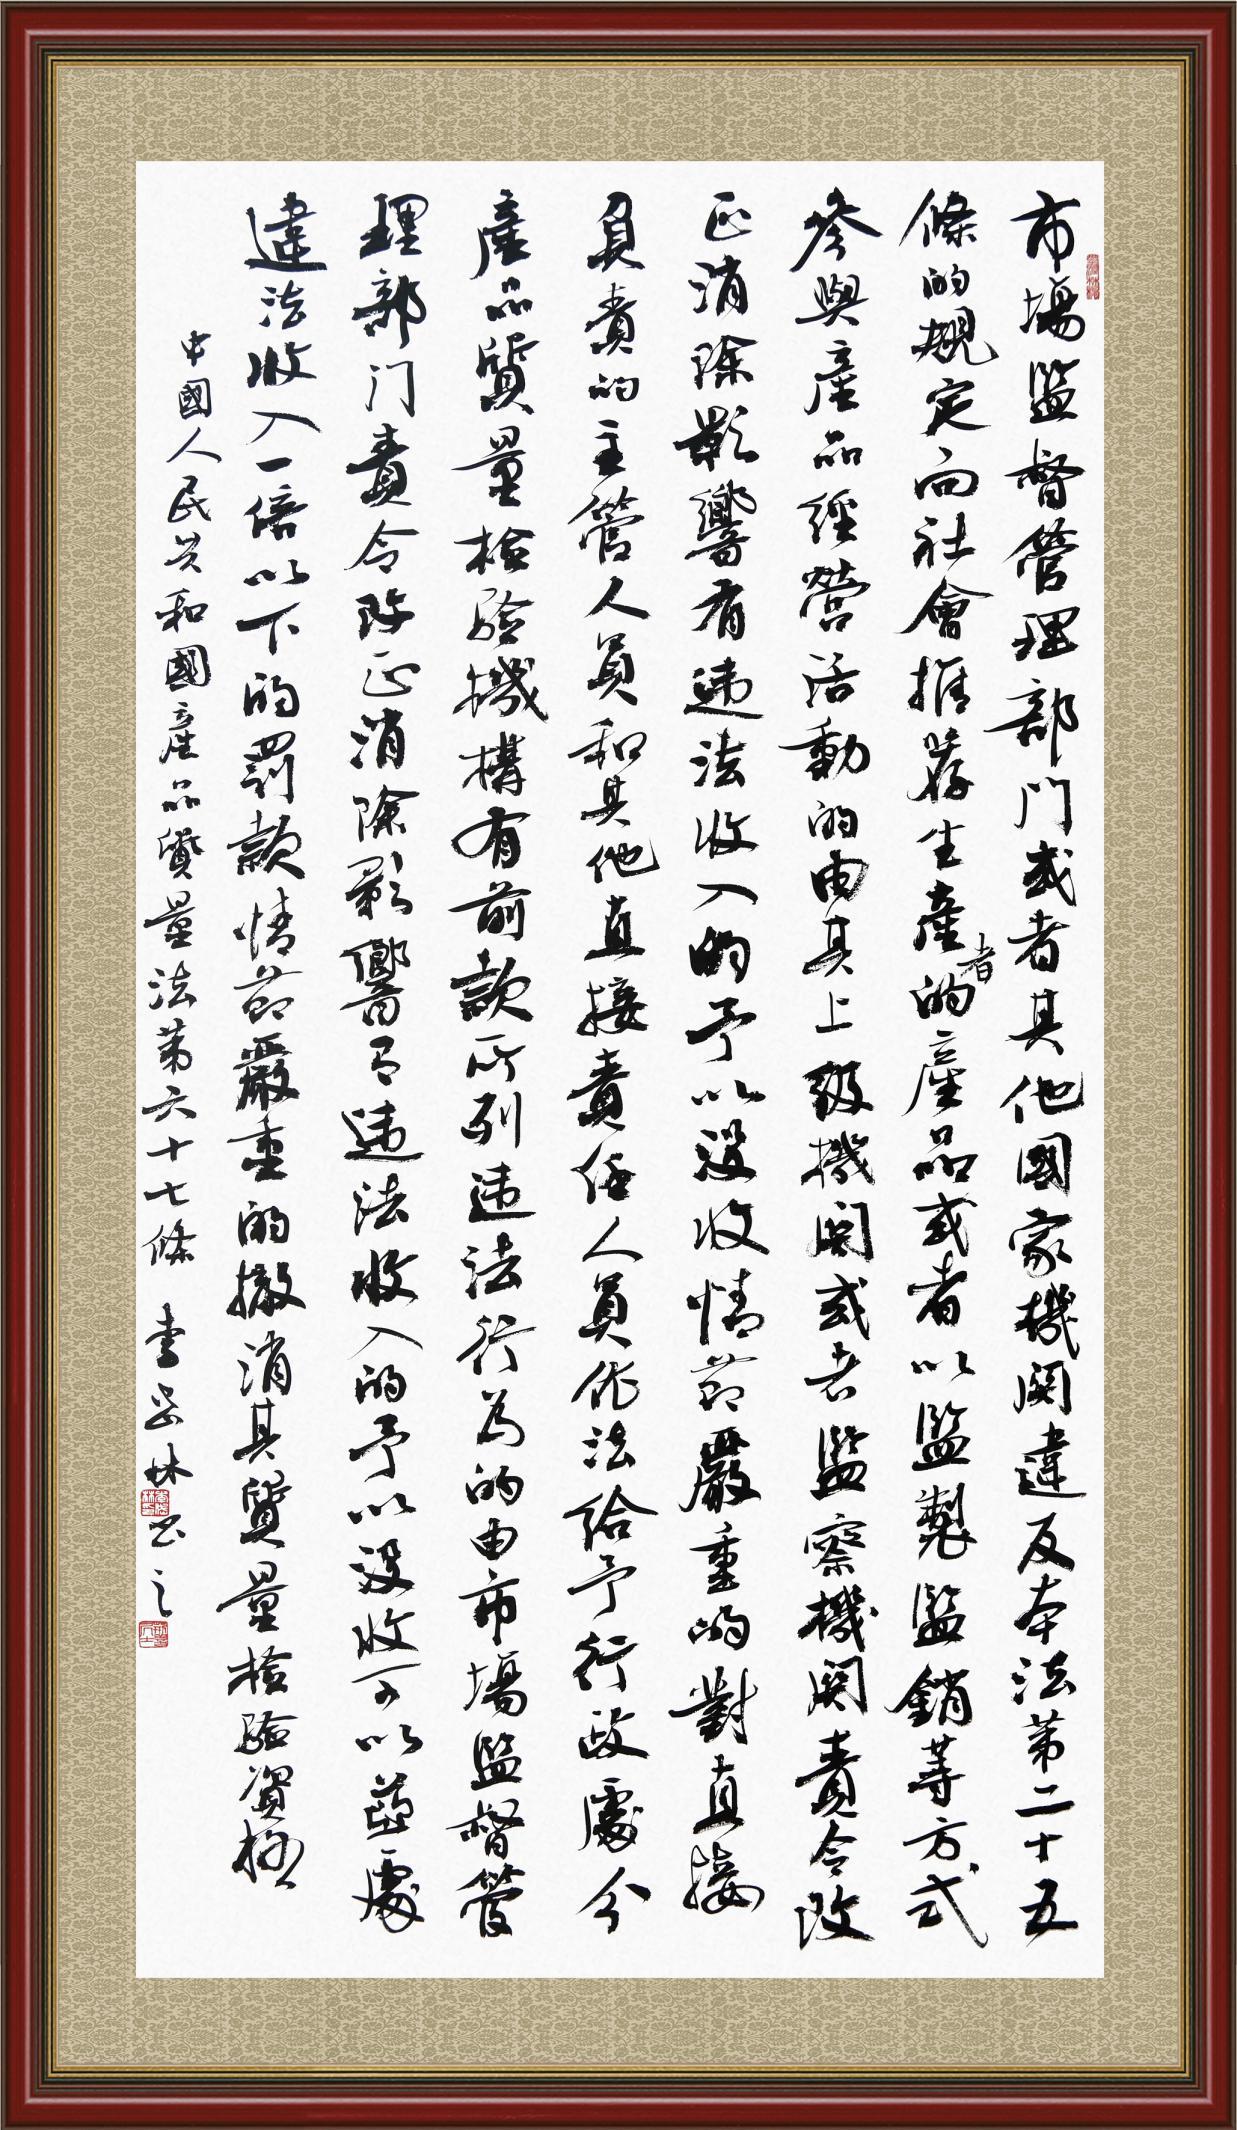 市場監督管理部門或者其他國家機関違反本法第二十五
條的規定向社會推荐生產者的產品或者以監製監銷等方式
參與產品經營活動的由其上級機関或者監察機関責令改
正消除影響有违法收入的予以没收情節嚴重的對直接
負責的主管人員和其他直接責任人員依法给予行政處分
產品質量检验機構有前款所列违法行为的由市場监督管
理部门責令改正消除影響有违法收入的予以没收可以並處
違法收入一倍以下的罰款情節嚴重的撤消其質量检验资格
中國人民共和國產品質量法第六十七條 李岳林书之